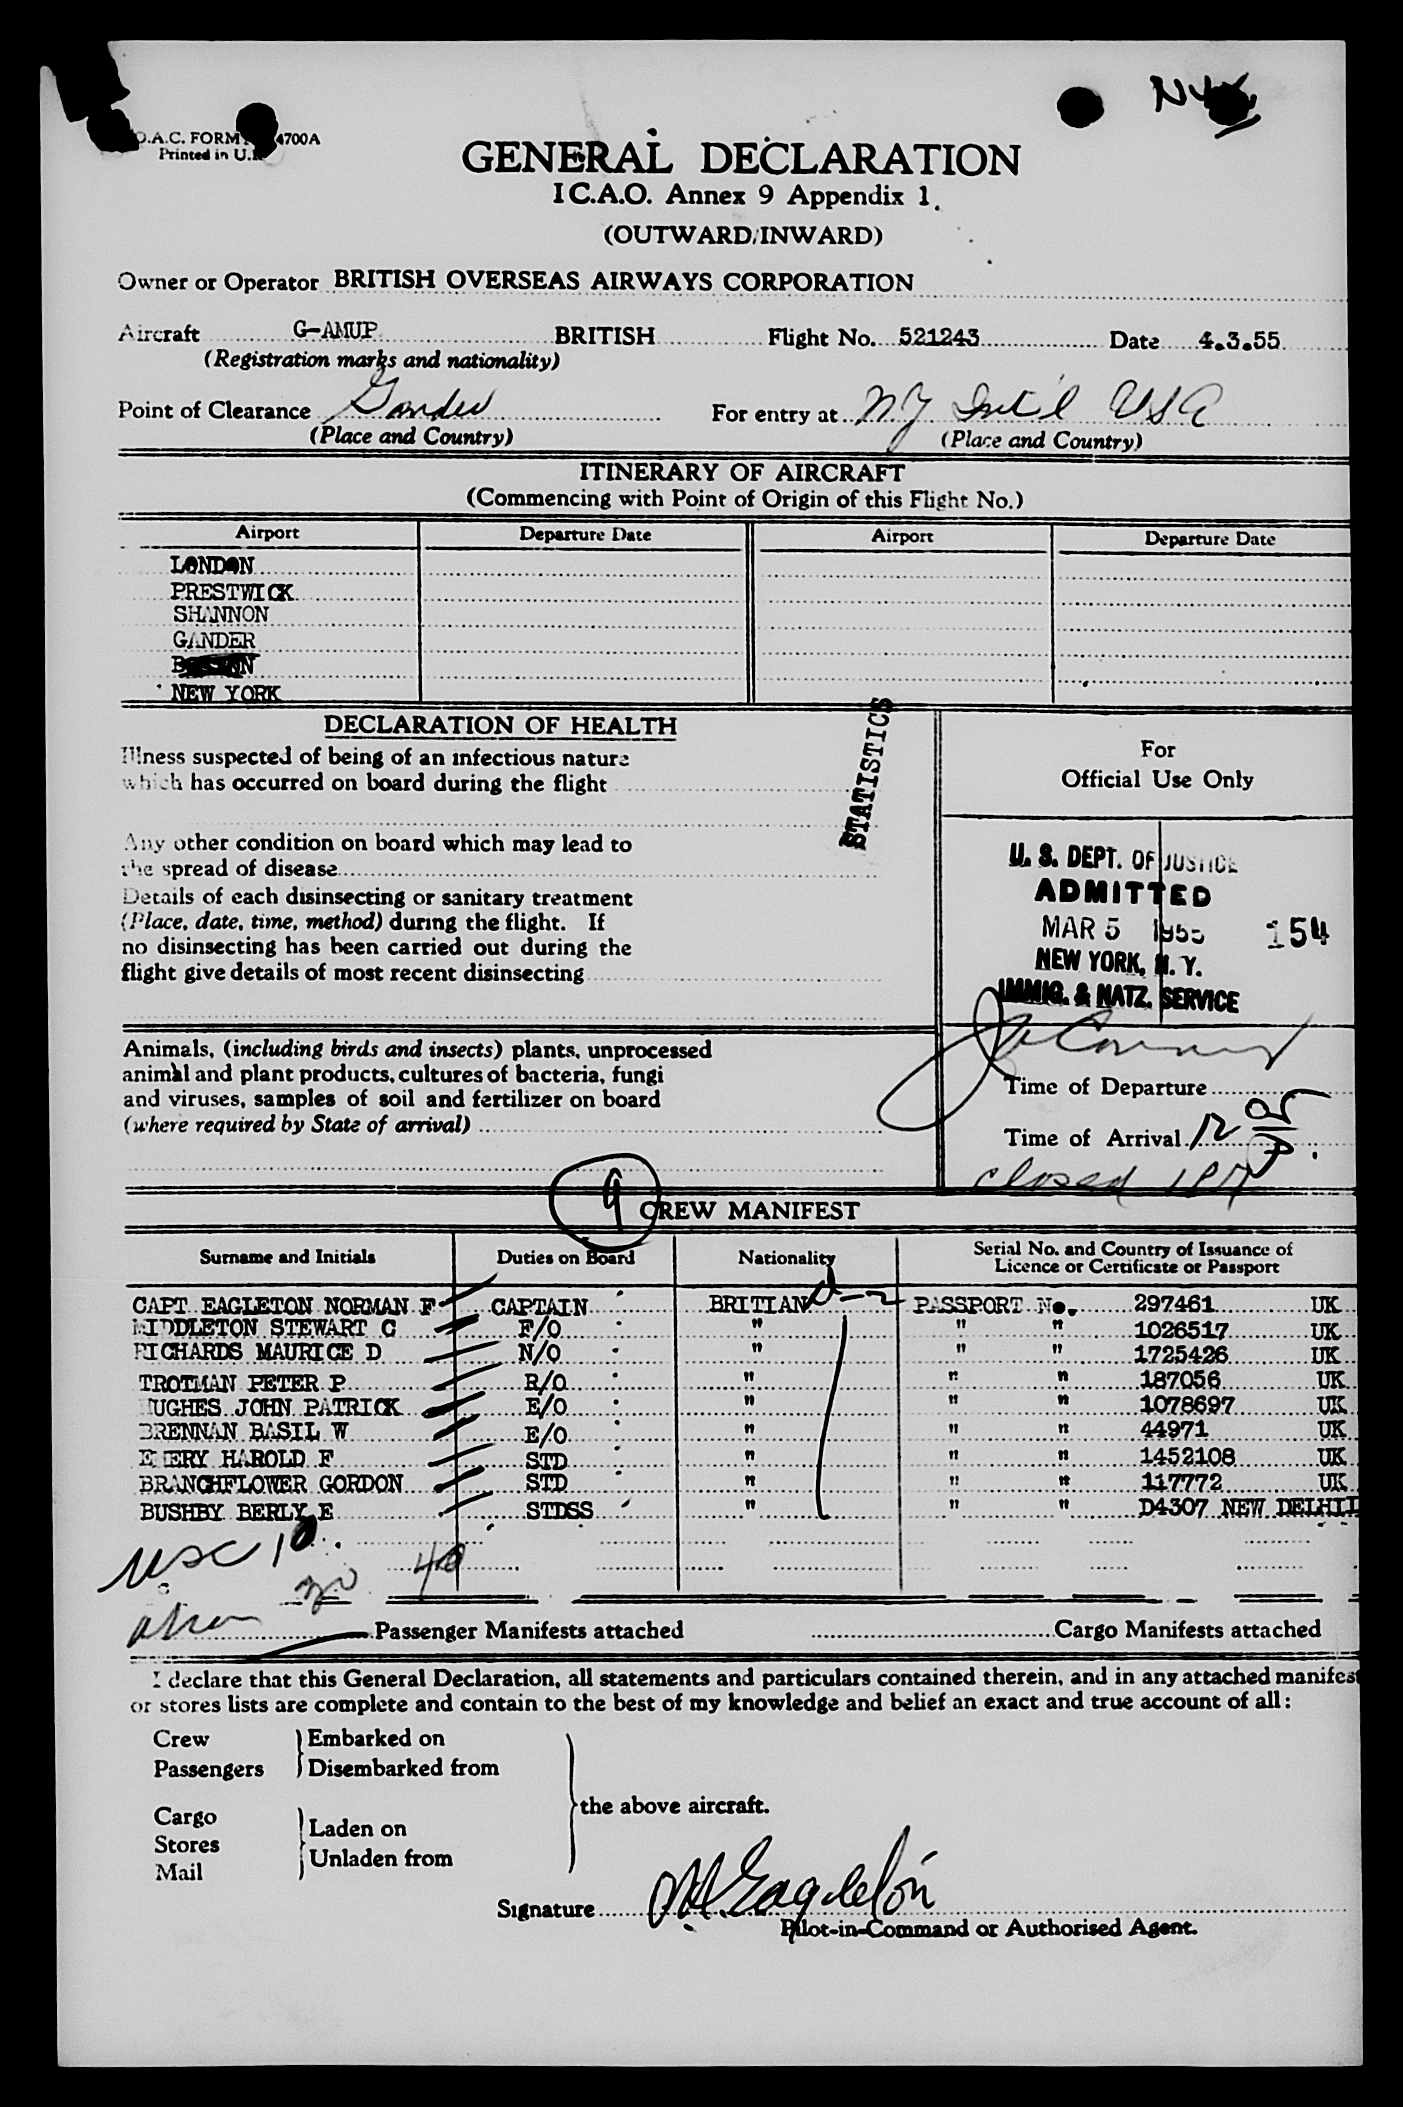 O.A.C. FORM 4700A
Printed in U.
GENERAL DECLARATION
I C.A.O. Annex 9 Appendix 1.
(OUTWARD/INWARD)
Owner or Operator BRITISH OVERSEAS AIRWAYS CORPORATION
Aircraft G-AMUP BRITISH Flight No. 521243 Date 4.3.55
(Registration marks and nationality)
Point of Clearance Gander For entry at NY Int'l USA
(Place and Country) (Place and Country)
ITINERARY OF AIRCRAFT
(Commencing with Point of Origin of this Flight No.)
Airport Departure Date Airport Departure Date
LONDON
PRESTWICK
SHANNON
GANDER
NEW YORK
DECLARATION OF HEALTH
Illness suspected of being of an infectious nature
which has occurred on board during the flight
Any other condition on board which may lead to
the spread of disease
Details of each disinsecting or sanitary treatment
(Place, date, time, method) during the flight. If
no disinsecting has been carried out during the
flight give details of most recent disinsecting
STATISTICS
For
Official Use Only
U. S. DEPT. OF JUSTICE
ADMITTED
MAR 5 1955 154
NEW YORK, N. Y.
IMMIG. & NATZ. SERVICE
Animals, (including birds and insects) plants, unprocessed
animal and plant products, cultures of bacteria, fungi
and viruses, samples of soil and fertilizer on board
(where required by State of arrival)
Time of Departure
Time of Arrival 12
closed
9
CREW MANIFEST
Surname and Initials Duties on Board Nationality Serial No. and Country of Issuance of
Licence or Certificate or Passport
CAPT EAGLETON NORMAN F CAPTAIN BRITIAN PASSPORT No. 297461 UK
MIDDLETON STEWART C F/O " " " 1026517 UK
RICHARDS MAURICE D N/O " " " 1725426 UK
TROTMAN PETER P R/O " " " 187056 UK
HUGHES JOHN PATRICK E/O " " " 1078697 UK
BRENNAN BASIL W E/O " " " 44971 UK
EMERY HAROLD F STD " " " 1452108 UK
BRANCHFLOWER GORDON STD " " " 117772 UK
BUSHBY BERLY E STDSS " " " D4307 NEW DELHII
USC 10
Passenger Manifests attached Cargo Manifests attached
I declare that this General Declaration, all statements and particulars contained therein, and in any attached manifest
or stores lists are complete and contain to the best of my knowledge and belief an exact and true account of all:
Crew Embarked on
Passengers Disembarked from
the above aircraft.
Cargo Laden on
Stores Unladen from
Mail
Signature N.F. Eagleton
Pilot-in-Command or Authorised Agent.